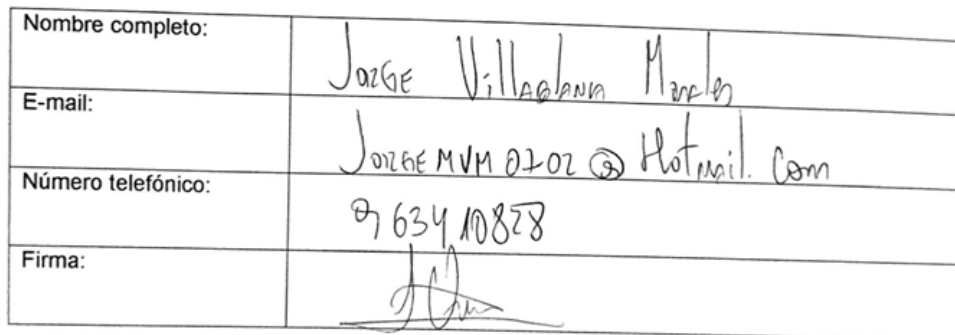 Nombre completo: Jorge Villablanca Morales
E-mail: JorgeMVM0702@Hotmail.com
Número telefónico: 963410828
Firma: